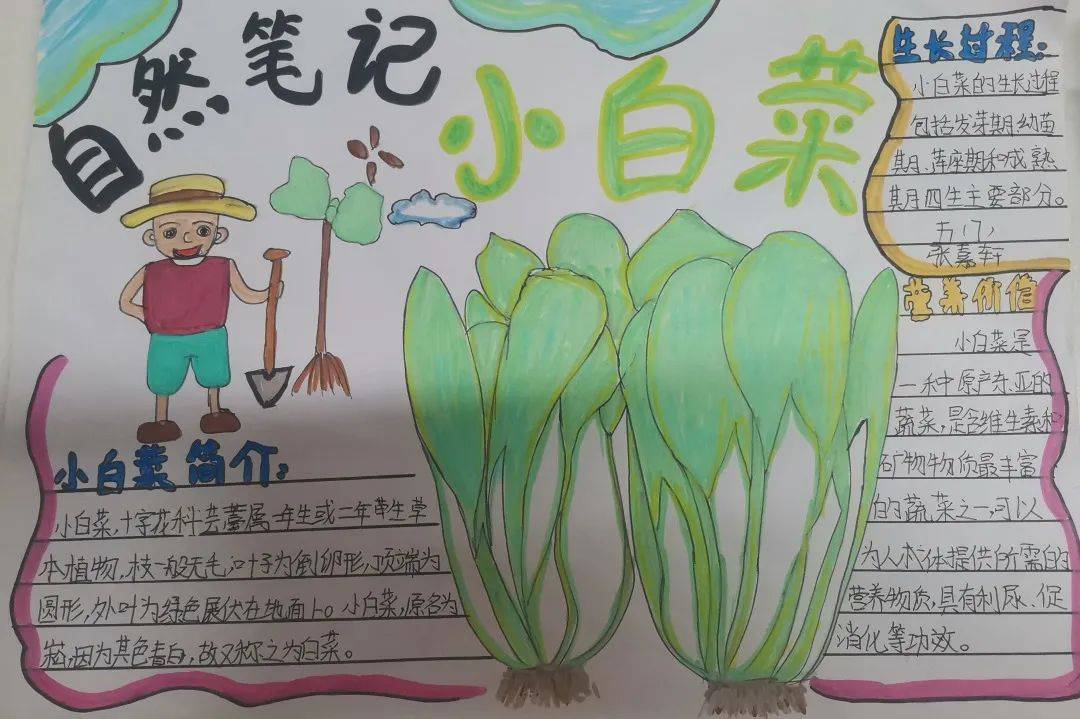 自然笔记
小白菜
生长过程:
小白菜的生长过程
包括发芽期、幼苗
期、莲座期和成熟
期四生主要部分。
五(7)
张嘉轩
营养价值
小白菜是
一种原产东亚的
蔬菜,是含维生素和
矿物物质最丰富
的蔬菜之一,可以
为人体提供所需的
营养物质,具有利尿、促
消化等功效。
小白菜简介:
小白菜,十字花科芸薹属一年生或二年草生草
本植物,枝一般无毛,叶子为倒卵形,顶端为
圆形,外叶为绿色展伏在地面上。小白菜,原名为
菘,因为其色青白,故又称之为白菜。